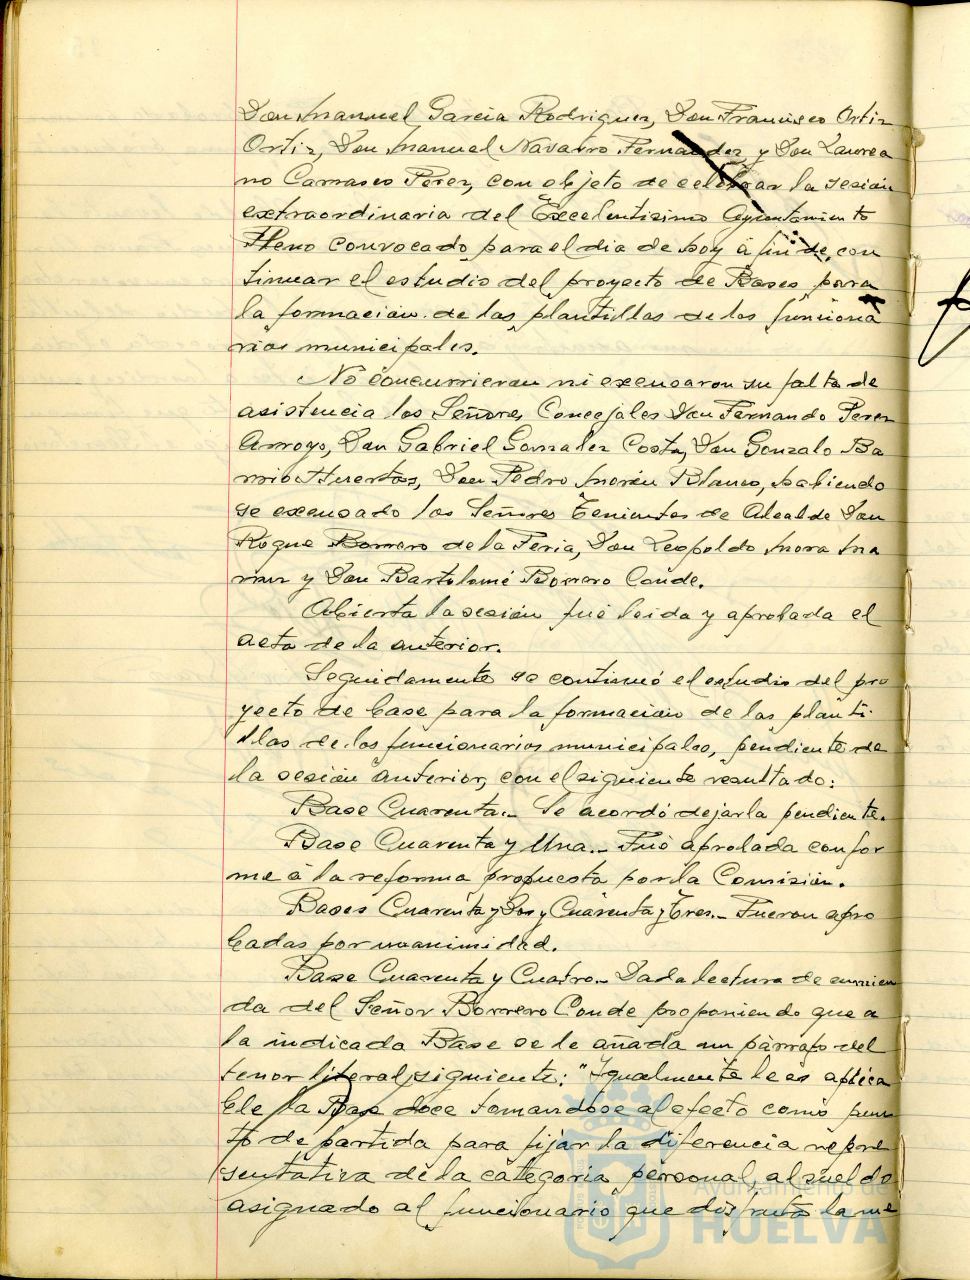 Don Manuel Garcia Rodriguez, Don Francisco Ortiz
Ortiz, Don Manuel Navarro Fernandez y Don Laurea
no Carrasco Perez, con objeto de celebrar la sesión
extraordinaria del Excelentisimo Ayuntamiento
Pleno convocado para el dia de hoy á fin de, con
tinuar el estudio del proyecto de Bases para
la formacion de las plantillas de los funciona
rios municipales.
No concurrieron ni excusaron su falta de
asistencia los Señores Concejales Don Fernando Perez
Arroyo, Don Gabriel Gonzalez Costa, Don Gonzalo Ba
rrio Huertas, Don Pedro Morón Blanco, habiendo
se excusado los Señores Tenientes de Alcalde Don
Roque Borrero de la Feria, Don Leopoldo Mora Ma
y Don Bartolomé Borrero Conde.
Abierta la sesión fué leida y aprobada el
acta de la anterior.
Seguidamente se continuó el estudio del pro
yecto de base para la formacion de las planti
llas de los funcionarios municipales, pendiente de
la sesión anterior, con el siguiente resultado:
Base Cuarenta.- Se acordó dejarla pendiente.
Base Cuarenta y Una.- Fué aprobada confor
me á la reforma propuesta por la Comisión.
Bases Cuarenta y Dos y Cuarenta y Tres.- Fueron apro
badas por unanimidad.
Base Cuarenta y Cuatro.- Dada lectura de enmien
da del Señor Borrero Conde proponiendo que a
la indicada Base se le añada un párrafo del
tenor literal siguiente: "Igualmente le es aplica
ble la Base doce tomandose al efecto como pun
to de partida para fijar la diferencia repre
sentativa de la categoría personal, al sueldo
asignado al funcionario que disfruta la me
Ayuntamiento de
HUELVA